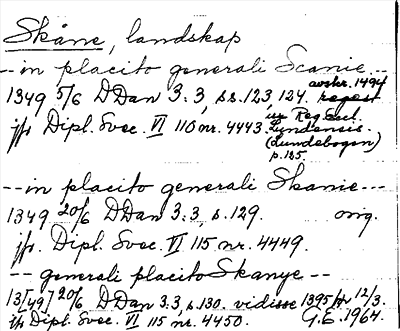 Skåne, landskap
-- in placito generali Scanie --
avskr. 1494
1349 5/6 DDan 3:3, s.s. 123, 124. regest
ur Reg. Eccl.
jfr Dipl. Svec. VI 110 nr. 4443. Lundensis.
(Lundebogen)
p. 185.
-- in placito generali Skanie ---
1349 20/6 DDan 3:3, s. 129. orig.
jfr. Dipl. Svec. VI 115 nr. 4449.
-- generali placito Skanye --
13[49] 20/6 DDan 3.3, s. 130. vidisse 1395 12/3.
jfr Dipl. Svec. VI 115 nr. 4450. G.E. 1964.